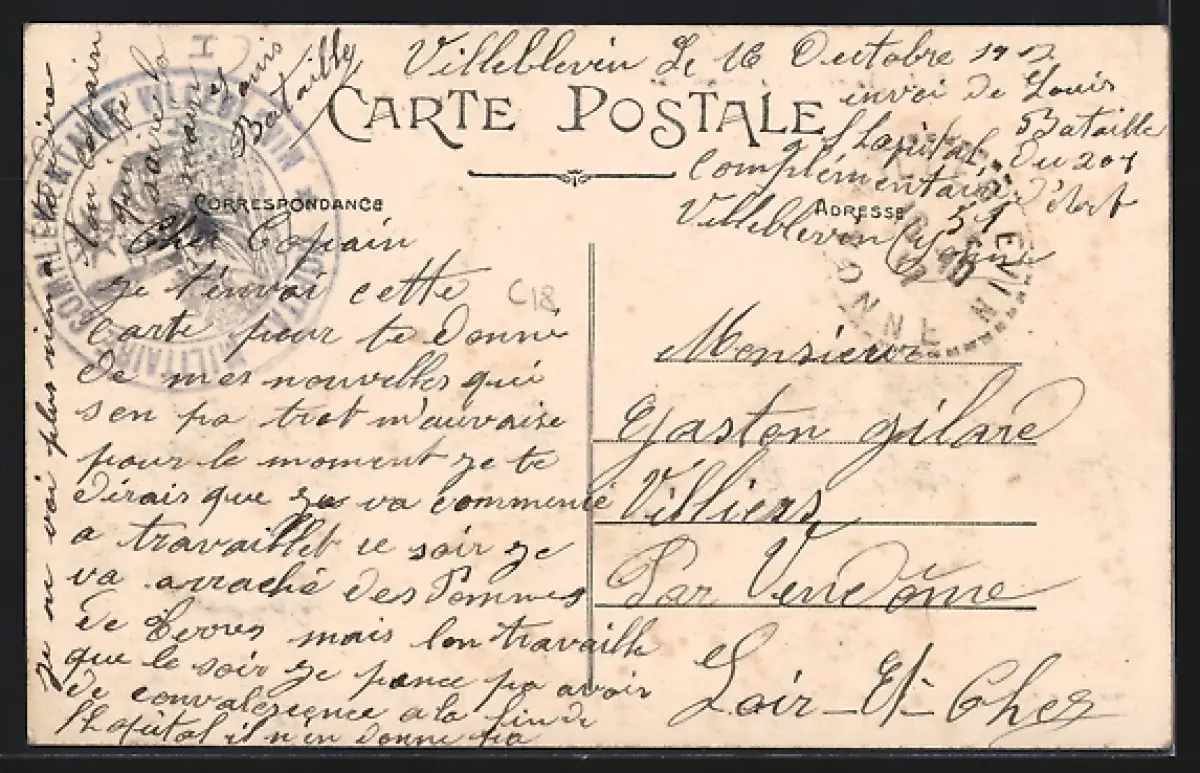 Villeblevin Le 16 Octobre
CARTE POSTALE
envoi de Louis
Bataille
hapital du 201
Complémentaire d'
Villeblevin Yonne 51
CORRESPONDANCE
ADRESSE
Cher Copain
je t'envoi cette
carte pour te donné
de mes nouvelles qui
s'en pa trot m'auvaise
pour le moment je te
dirais que va commencé
a travaillet ce soir je
va arraché des Pommes
de Terres mais lon travaille
que le soir je pence pa avoir
de convalesçence a la fin de
lhapital il n'en donne pa
je ne voi plus rien a te dire
ton copain
qui te
saire la
main
Louis
Bataille
Monsieur
Gaston gilard
Villiers
Par Vendôme
Loir-Et-Cher
C18
HOPITAL COMPLEMENTAIRE VILLEBLEVIN
MILITAIRE
YONNE